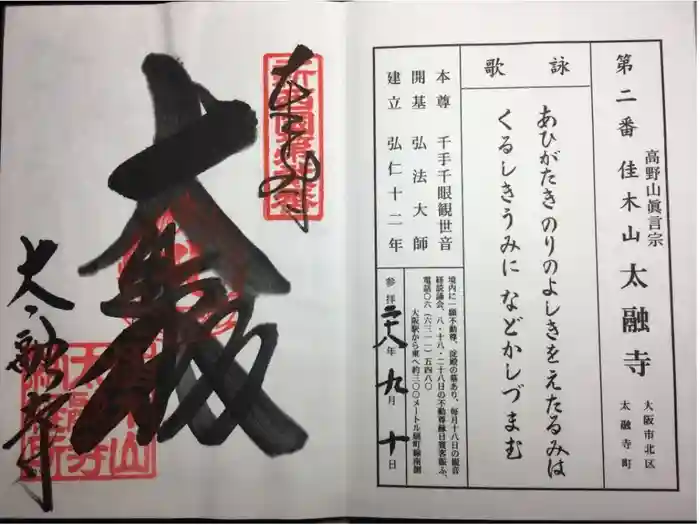 第二番 高野山眞言宗 佳木山 太融寺 大阪市北区
太融寺町
詠歌
あひがたきのりのよしきをえたるみは
くるしきうみに などかしづまむ
本尊 千手千眼観世音
開基 弘法大師
建立 弘仁十二年
境内に一願不動尊、淀殿の墓あり、毎月十八日の観音
経読誦会、八・十八・二十八日の不動尊縁日賽客賑ふ、
電話〇六(六三一一)五四八〇
大阪駅から東へ約三〇〇メートル扇町線南側
参拝二十八年九月十日
奉拝
大悲殿
太融寺